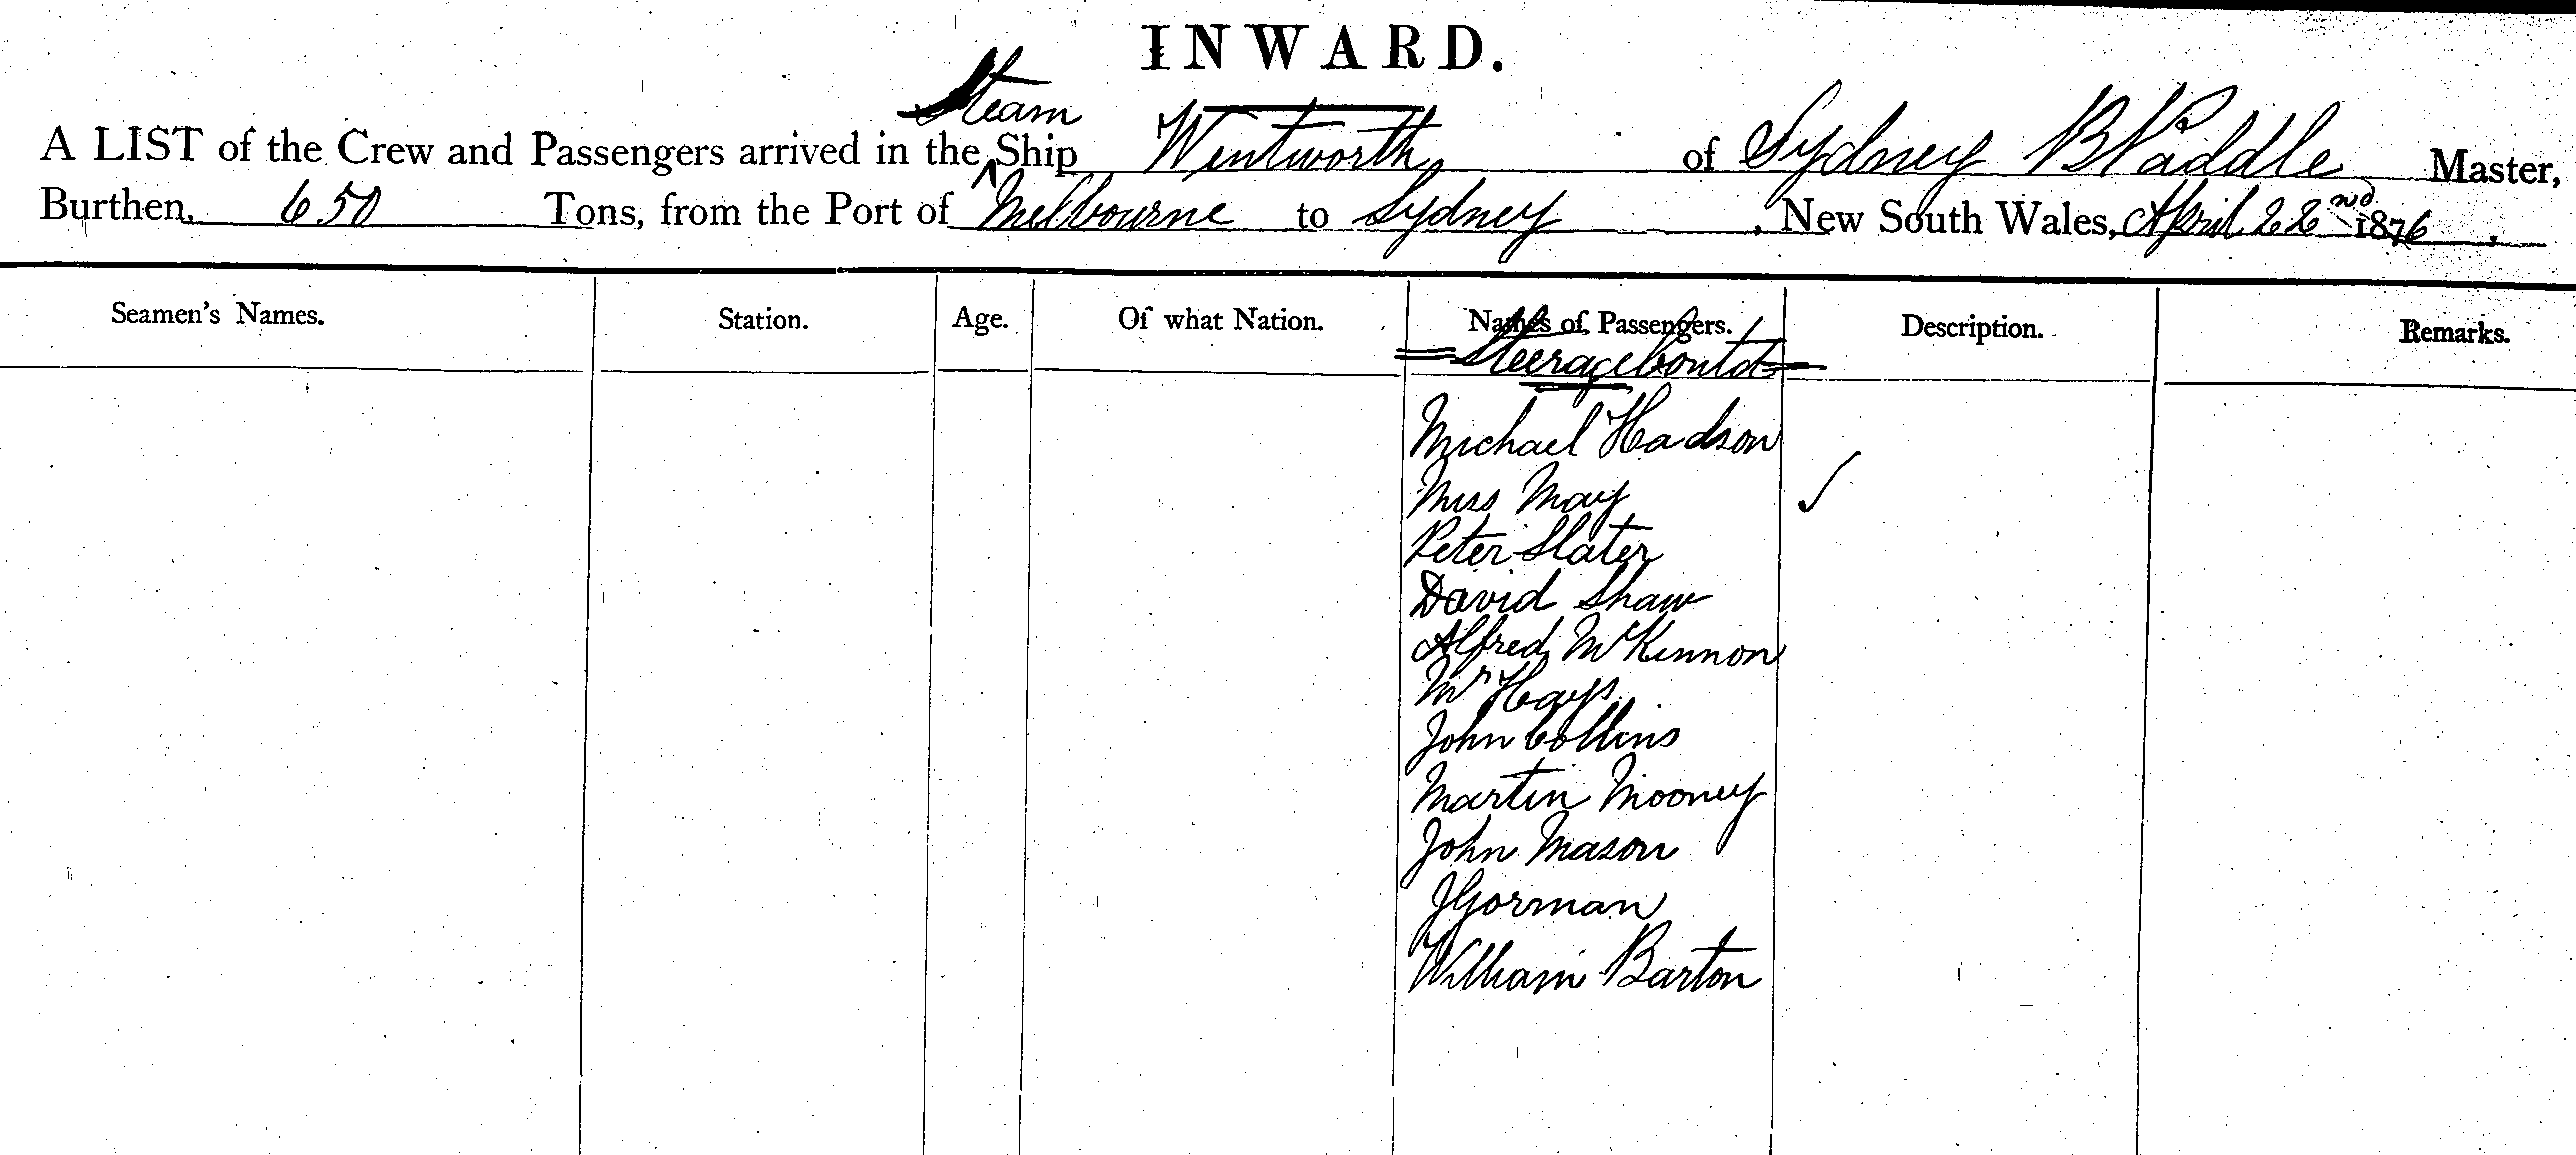 INWARD.
Steam
A LIST of the Crew and Passengers arrived in the ^ Ship Wentworth of Sydney B Paddle Master,
Burthen, 650 Tons, from the Port of Melbourne to Sydney, New South Wales, April 22nd 1876,
Seamen's Names. Station. Age. Of what Nation. Names of Passengers. Description. Remarks.
Steerage Contd
Michael Hadson
Miss May ✓
Peter Slater
David Shaw
Alfred McKinnon
Mr Hays
John Collins
Martin Mooney
John Mason
J Gorman
William Barton